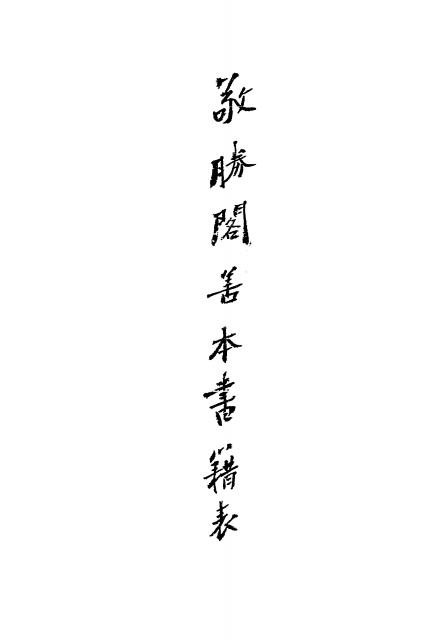 敬勝閣善本書籍表